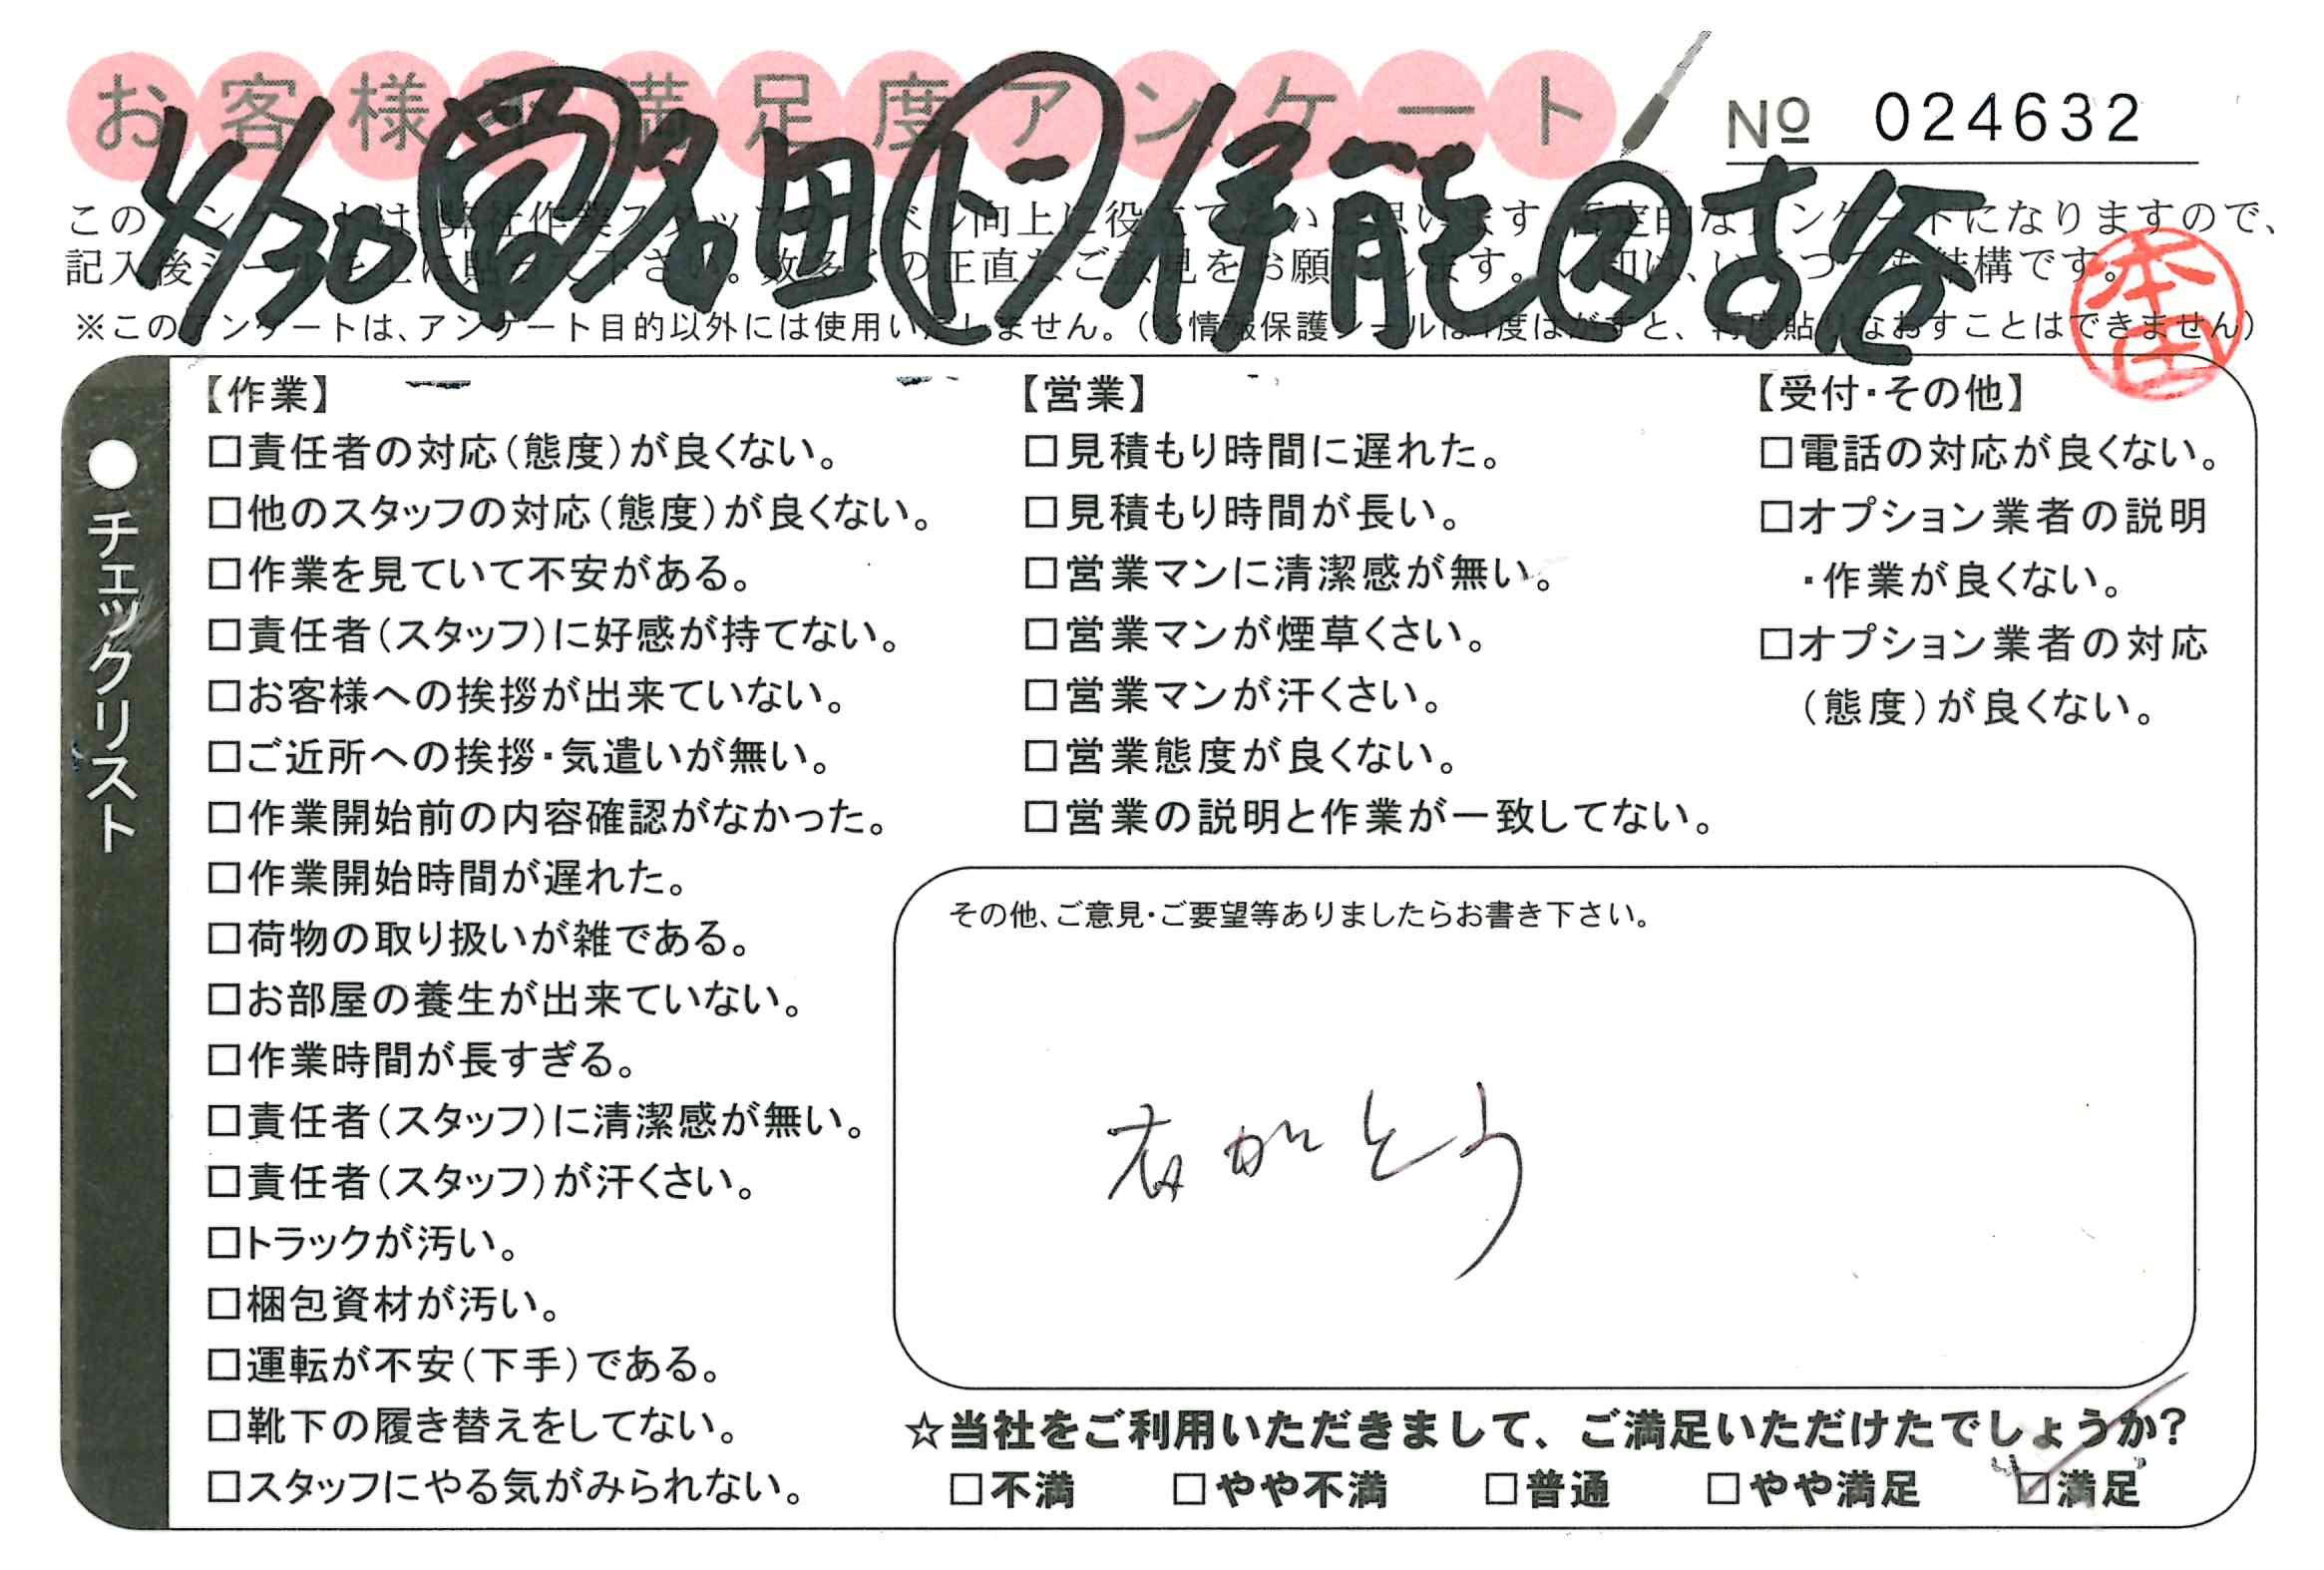 お客様 満足度アンケート
№ 024632
4/30 営 名田 ト 伊能 ス 古谷
本田
※このアンケートは、アンケート目的以外には使用いたしません。
チェックリスト
【作業】
□責任者の対応（態度）が良くない。
□他のスタッフの対応（態度）が良くない。
□作業を見ていて不安がある。
□責任者（スタッフ）に好感が持てない。
□お客様への挨拶が出来ていない。
□ご近所への挨拶・気遣いが無い。
□作業開始前の内容確認がなかった。
□作業開始時間が遅れた。
□荷物の取り扱いが雑である。
□お部屋の養生が出来ていない。
□作業時間が長すぎる。
□責任者（スタッフ）に清潔感が無い。
□責任者（スタッフ）が汗くさい。
□トラックが汚い。
□梱包資材が汚い。
□運転が不安（下手）である。
□靴下の履き替えをしてない。
□スタッフにやる気がみられない。
【営業】
□見積もり時間に遅れた。
□見積もり時間が長い。
□営業マンに清潔感が無い。
□営業マンが煙草くさい。
□営業マンが汗くさい。
□営業態度が良くない。
□営業の説明と作業が一致してない。
【受付・その他】
□電話の対応が良くない。
□オプション業者の説明
・作業が良くない。
□オプション業者の対応
（態度）が良くない。
その他、ご意見・ご要望等ありましたらお書き下さい。
ありがとう
☆当社をご利用いただきまして、ご満足いただけたでしょうか？
□不満 □やや不満 □普通 □やや満足 ☑満足